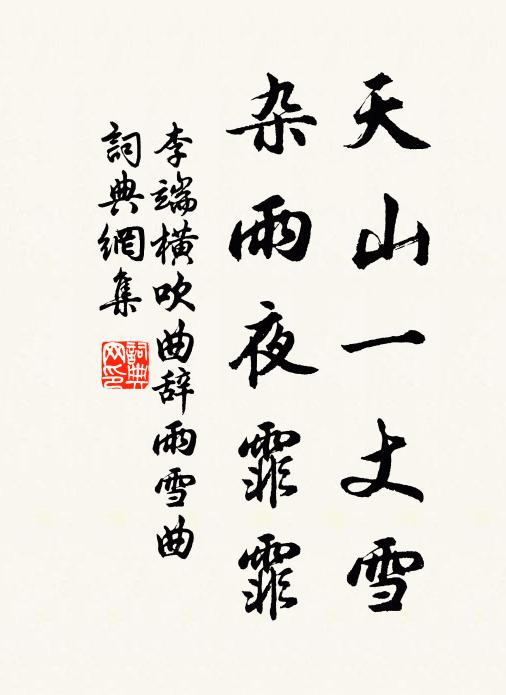 天山一丈雪
杂雨夜霏霏
李端横吹曲辞雨雪曲
詞典網集
詞典
网印